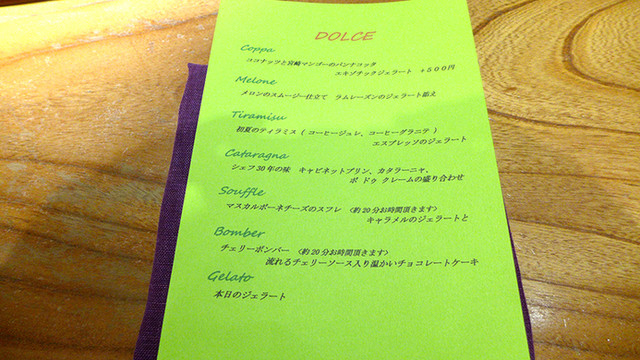 DOLCE
Coppa
ココナッツと宮崎マンゴーのパンナコッタ
エキゾチックジェラート +500円
Melone
メロンのスムージー仕立て ラムレーズンのジェラート添え
Tiramisu
初夏のティラミス (コーヒージュレ、コーヒーグラニテ)
エスプレッソのジェラート
Cataragna
シェフ30年の味 キャビネットプリン、カタラーニャ、
ポ ドゥ クレームの盛り合わせ
Souffle
マスカルポーネチーズのスフレ 〈約20分お時間頂きます〉
キャラメルのジェラートと
Bomber
チェリーボンバー 〈約20分お時間頂きます〉
流れるチェリーソース入り温かいチョコレートケーキ
Gelato
本日のジェラート